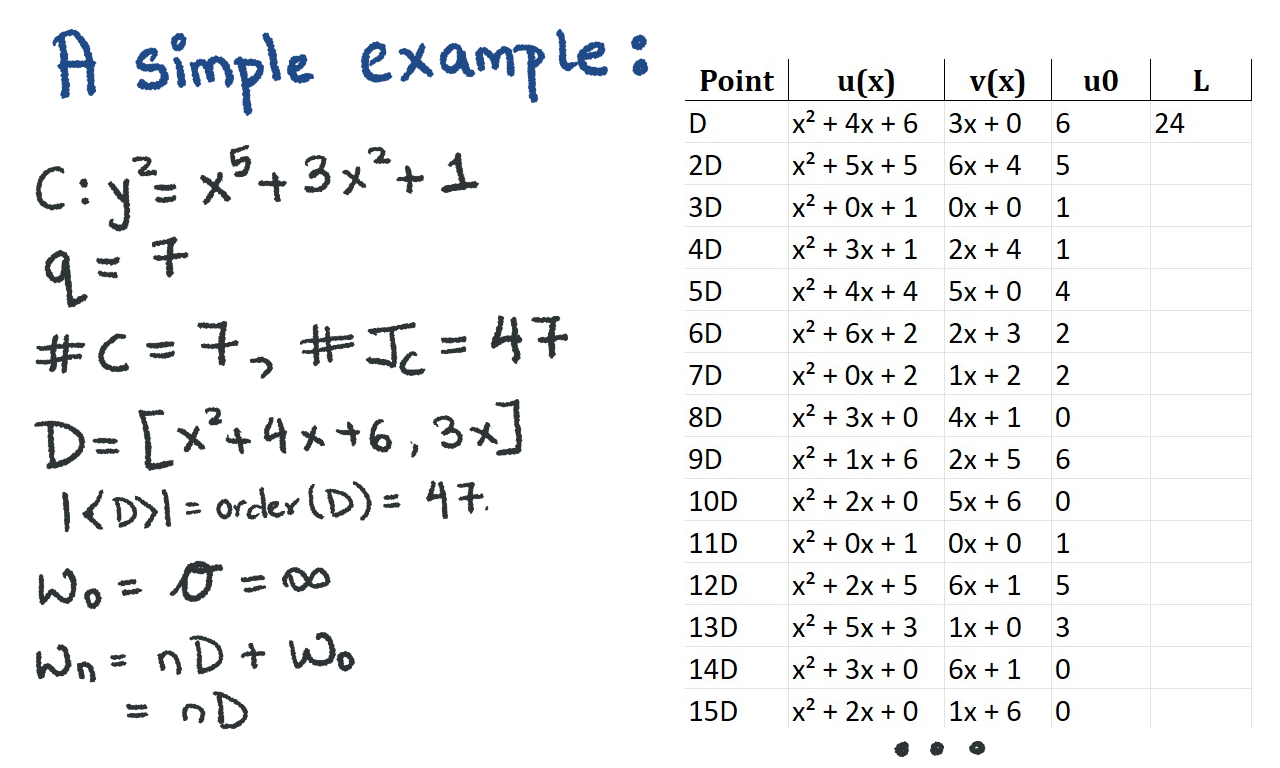 A simple example:
C: y² = x⁵ + 3x² + 1
q = 7
#C = 7, #J_C = 47
D = [x² + 4x + 6, 3x]
|<D>| = order(D) = 47.
W₀ = O = ∞
Wₙ = nD + W₀
= nD
Point u(x) v(x) u0 L
D x² + 4x + 6 3x + 0 6 24
2D x² + 5x + 5 6x + 4 5
3D x² + 0x + 1 0x + 0 1
4D x² + 3x + 1 2x + 4 1
5D x² + 4x + 4 5x + 0 4
6D x² + 6x + 2 2x + 3 2
7D x² + 0x + 2 1x + 2 2
8D x² + 3x + 0 4x + 1 0
9D x² + 1x + 6 2x + 5 6
10D x² + 2x + 0 5x + 6 0
11D x² + 0x + 1 0x + 0 1
12D x² + 2x + 5 6x + 1 5
13D x² + 5x + 3 1x + 0 3
14D x² + 3x + 0 6x + 1 0
15D x² + 2x + 0 1x + 6 0
• • •